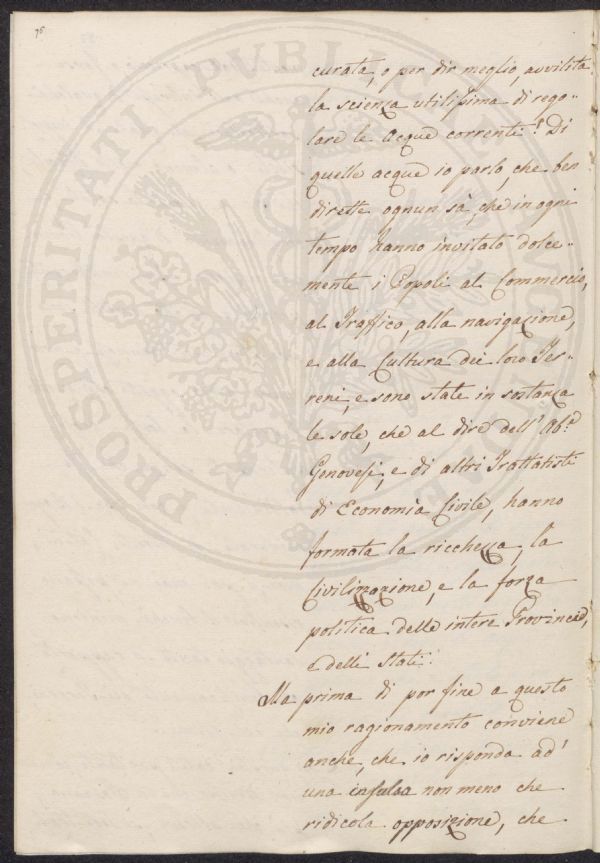 78
curata, o per dir meglio, avvilita
la scienza utilissima di rego-
lare le Acque correnti! Di
quelle acque io parlo, che ben
dirette ognun sà, che in ogni
tempo hanno invitato dolce-
mente i Popoli al Commercio,
al Traffico, alla navigazione,
e alla Cultura dei loro Ter-
reni, e sono state in sostanza
le sole, che al dire dell' Ab.e
Genovesi, e di altri Trattatisti
di Economia Civile, hanno
formata la ricchezza, la
Civilizzazione, e la forza
politica delle intere Provincie,
e delli Stati.
Ma prima di por fine a questo
mio ragionamento conviene
anche, che io risponda ad'
una insulsa non meno che
ridicola opposizione, che
PROSPERITATI PVBLICAE AVGENDAE